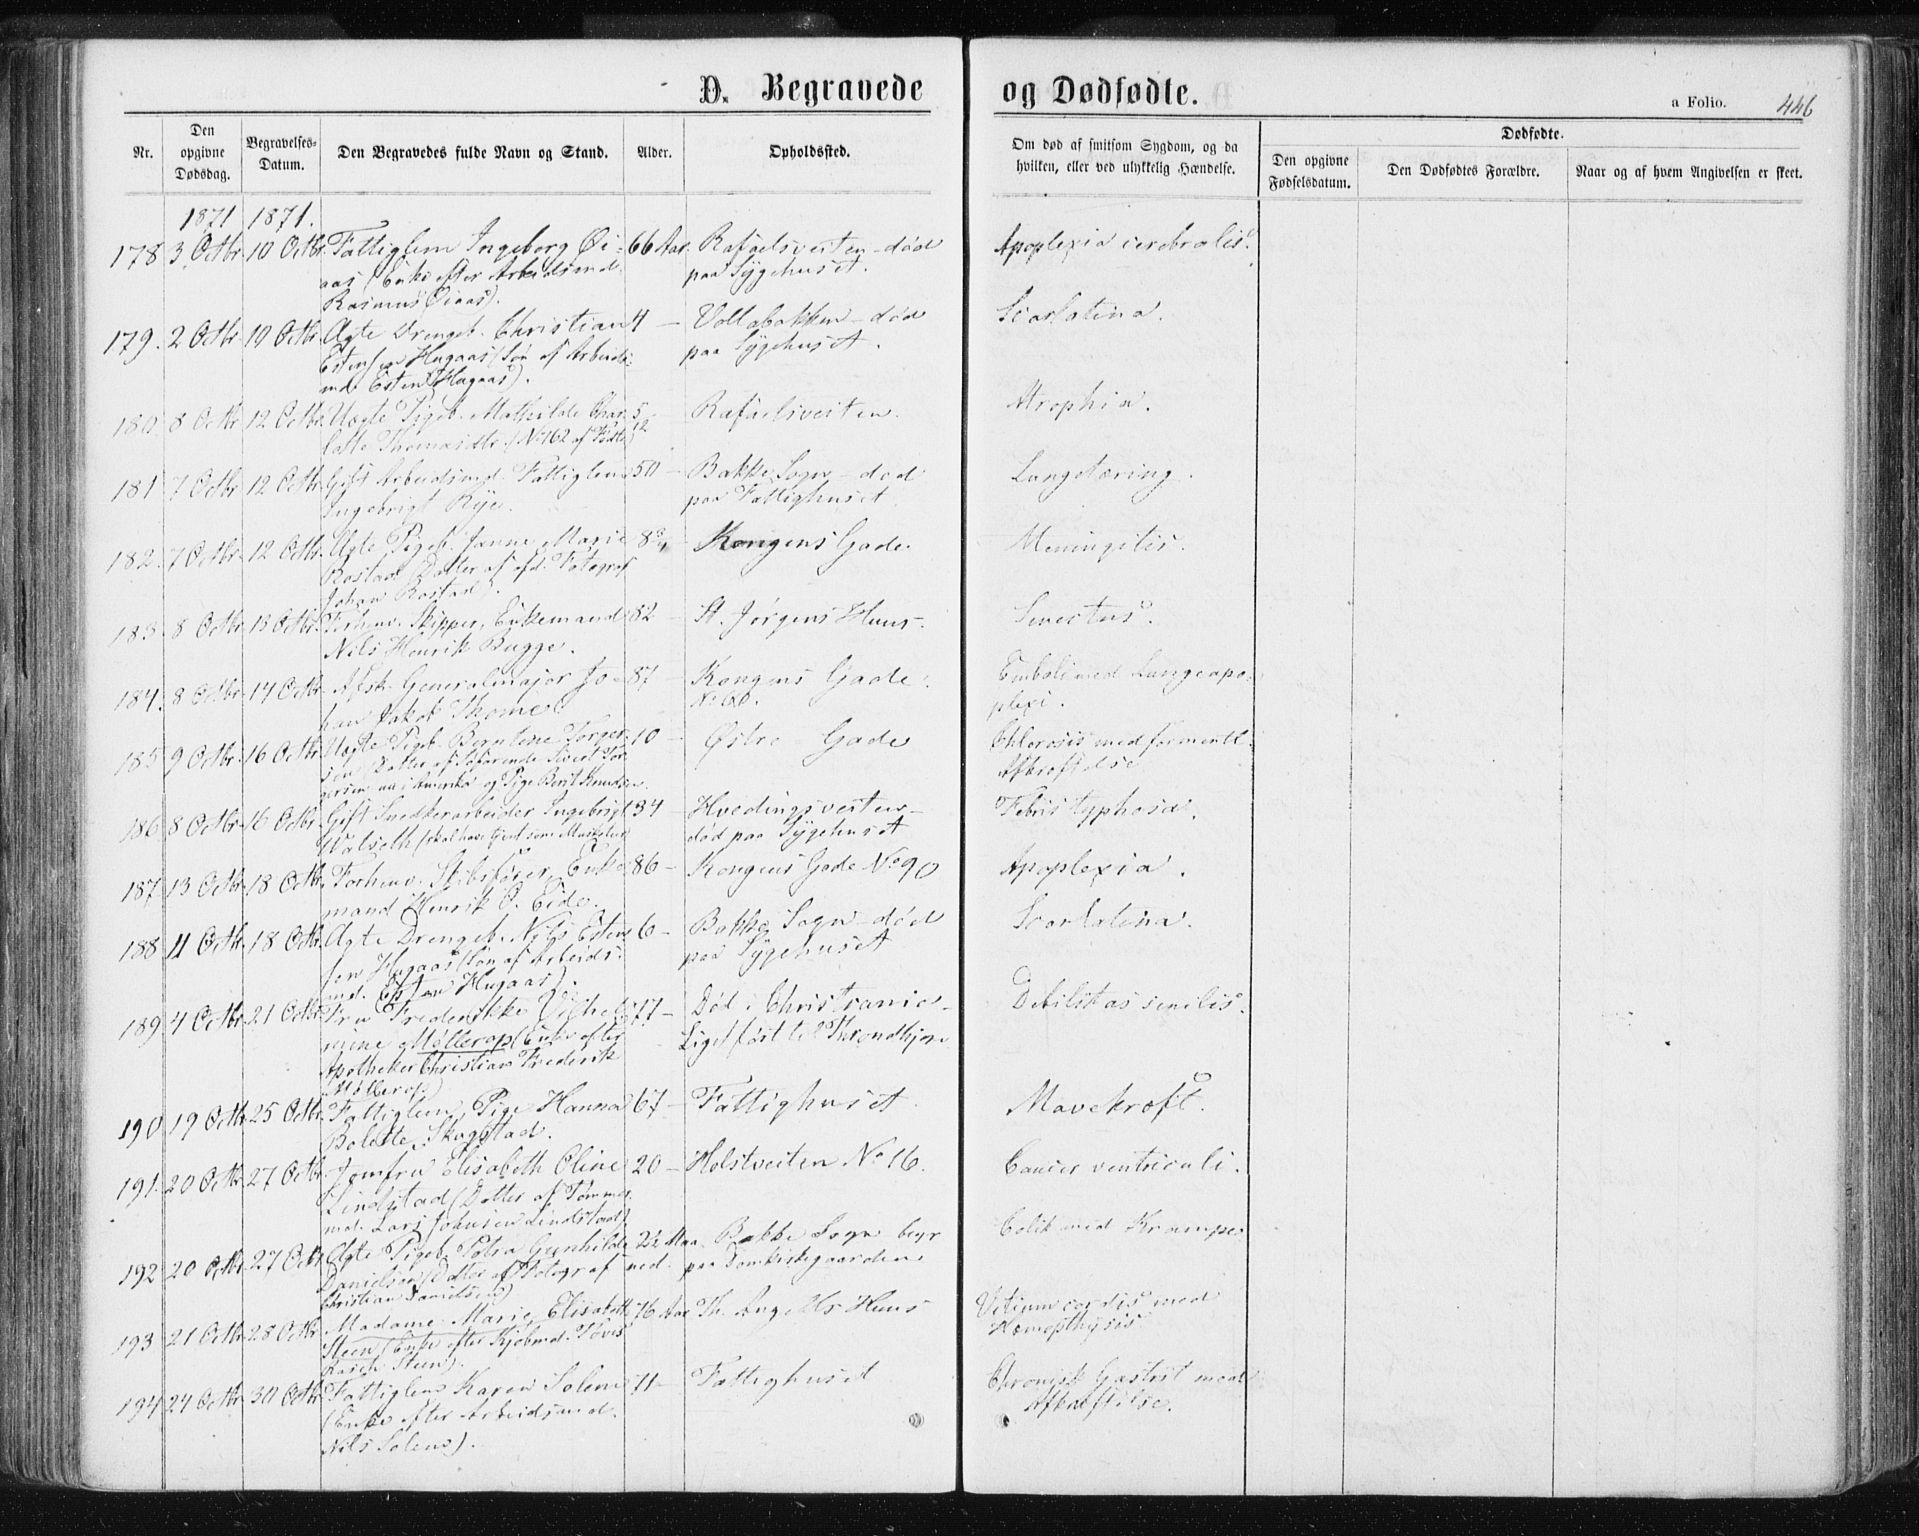 D. Begravede og Dødfødte.
a Folio. 446
Nr.
Den opgivne Dødsdag.
Begravelses-Datum.
Den Begravedes fulde Navn og Stand.
Alder.
Opholdssted.
Om død af smitsom Sygdom, og da hvilken, eller ved ulykkelig Hændelse.
Dødfødte.
Den opgivne Fødselsdatum.
Den Dødfødtes Forældre.
Naar og af hvem Angivelsen er skeet.
1871 1871.
178 3 Octbr 10 Octbr Fattiglem Ingeborg Øi- 66 Aar Rafaelsveiten - død Apoplexia cerebralis.
aas (Enke efter Arbeidsmd. paa Sygehuset.
Rasmus Øiaas).
179. 2 Octbr 10 Octbr Ægte Drengeb. Christian 4 — Vollabakken - død Scarlatina.
Estensen Hugaas (Søn af Arbeids- paa Sygehuset.
md. Esten Hugaas).
180 8 Octbr 12 Octbr Uægte Pigeb. Mathilde Char- 5/12 Rafaelsveiten. Atrophia.
lotte Thomasdtr. (No 162 af Fødte)
181 7 Octbr 12 Octbr Gift Arbeidsmd. Fattiglem 50 — Bakke Sogn - død Lungetæring.
Ingebrigt Rye. paa Fattighuset
182. 7 Octbr 12 Octbr Ægte Pigeb. Janne Marie 8 Kongens Gade. Meningitis.
Rostad (Datter af afd. Fotograf
Johan Rostad).
183. 8 Octbr 13 Octbr Forhenv. Skipper, Enkemand 82 — St. Jørgens Huus. Senectus.
Nils Henrik Bugge.
184. 8 Octbr 14 Octbr Afsk. Generalmajor Jo- 87 — Kongens Gade. Emboli med Lungeapo-
han Jakob Thome No 60. plexi.
185 9 Octbr 16 Octbr Uægte Pigeb. Berntine Torger- 10 — Østre Gade Chlorosis med formentl.
sen (Datter af Søfarende Sivert Tor- Afkræftelse
gersen nu i Amerika og Pige Berit Knudsen
186 8 Octbr 16 Octbr Gift Snedkerarbeider Ingebrigt 34 — Hvedingsveiten - Febris typhosa.
Halseth (skal have tjent som død paa Sygehuset
187 13 Octbr 18 Octbr Forhenv. Skibsfører, Enke- 86 — Kongens Gade No 90 Apoplexia.
mand Henrik O. Eide.
188 11 Octbr 18 Octbr Ægte Drengeb. Nils Esten- 6 — Bakke Sogn - død Scarlatina.
sen Hugaas (Søn af Arbeids- paa Sygehuset
md. Esten Hugaas).
189 4 Octbr 21 Octbr Fru Frederikke Vilhel- 77 — Død i Christiania - Debilitas senilis.
mine Møllerop (Enke efter Liget ført til Throndhjem
Apotheker Christian Frederik
Møllerop)
190 19 Octbr 25 Octbr Fattiglem, Pige Hanna 67 — Fattighuset. Mavekræft.
Bolette Skogstad.
191. 20 Octbr 27 Octbr Jomfru Elisabeth Oline 20 — Holstveiten No 16. Cancer ventriculi.
Lindstad (Datter af Tømmer-
md. Lars Johnsen Lindstad)
192 20 Octbr 27 Octbr Ægte Pigeb. Petra Gunhilde 2½ Maa- Bakke Sogn begr Colik med Krampe
Danielsen (Datter af Fotograf ned. paa Domkirkegaarden
Christian Danielsen)
193 21 Octbr 28 Octbr Madame Marie Elisabeth 76 Aar Th. Angells Huus Vitium cordis med
Steen (Enke efter Kjøbmd. Hæmopthysis
Rasch Steen).
194 24 Octbr 30 Octbr Fattiglem Karen Solem 71 — Fattighuset Chronisk Gastrit med
(Enke efter Arbeidsmd. Afkræftelse.
Nils Solem).